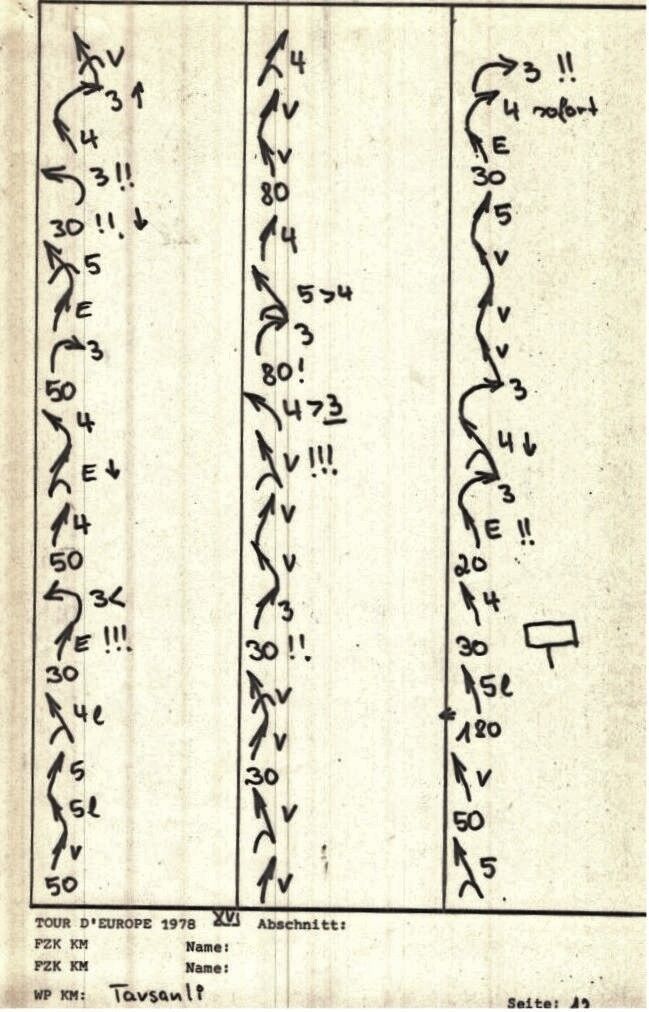 V
3 ↑
4
3 !!
30 !! ↓
5
E
3
50
4
E ↓
4
50
3<
E !!!
30
4l
5
5l
V
50
4
V
V
80
4
5>4
3
80!
4>3
V !!!
V
V
3
30 !!
V
V
30
V
V
3 !!
4 sofort
E
30
5
V
V
V
3
4 ↓
3
E !!
20
4
30
5l
180
V
50
5
TOUR D'EUROPE 1978 XVI Abschnitt:
FZK KM Name:
FZK KM Name:
WP KM: Tavsanli
Seite: